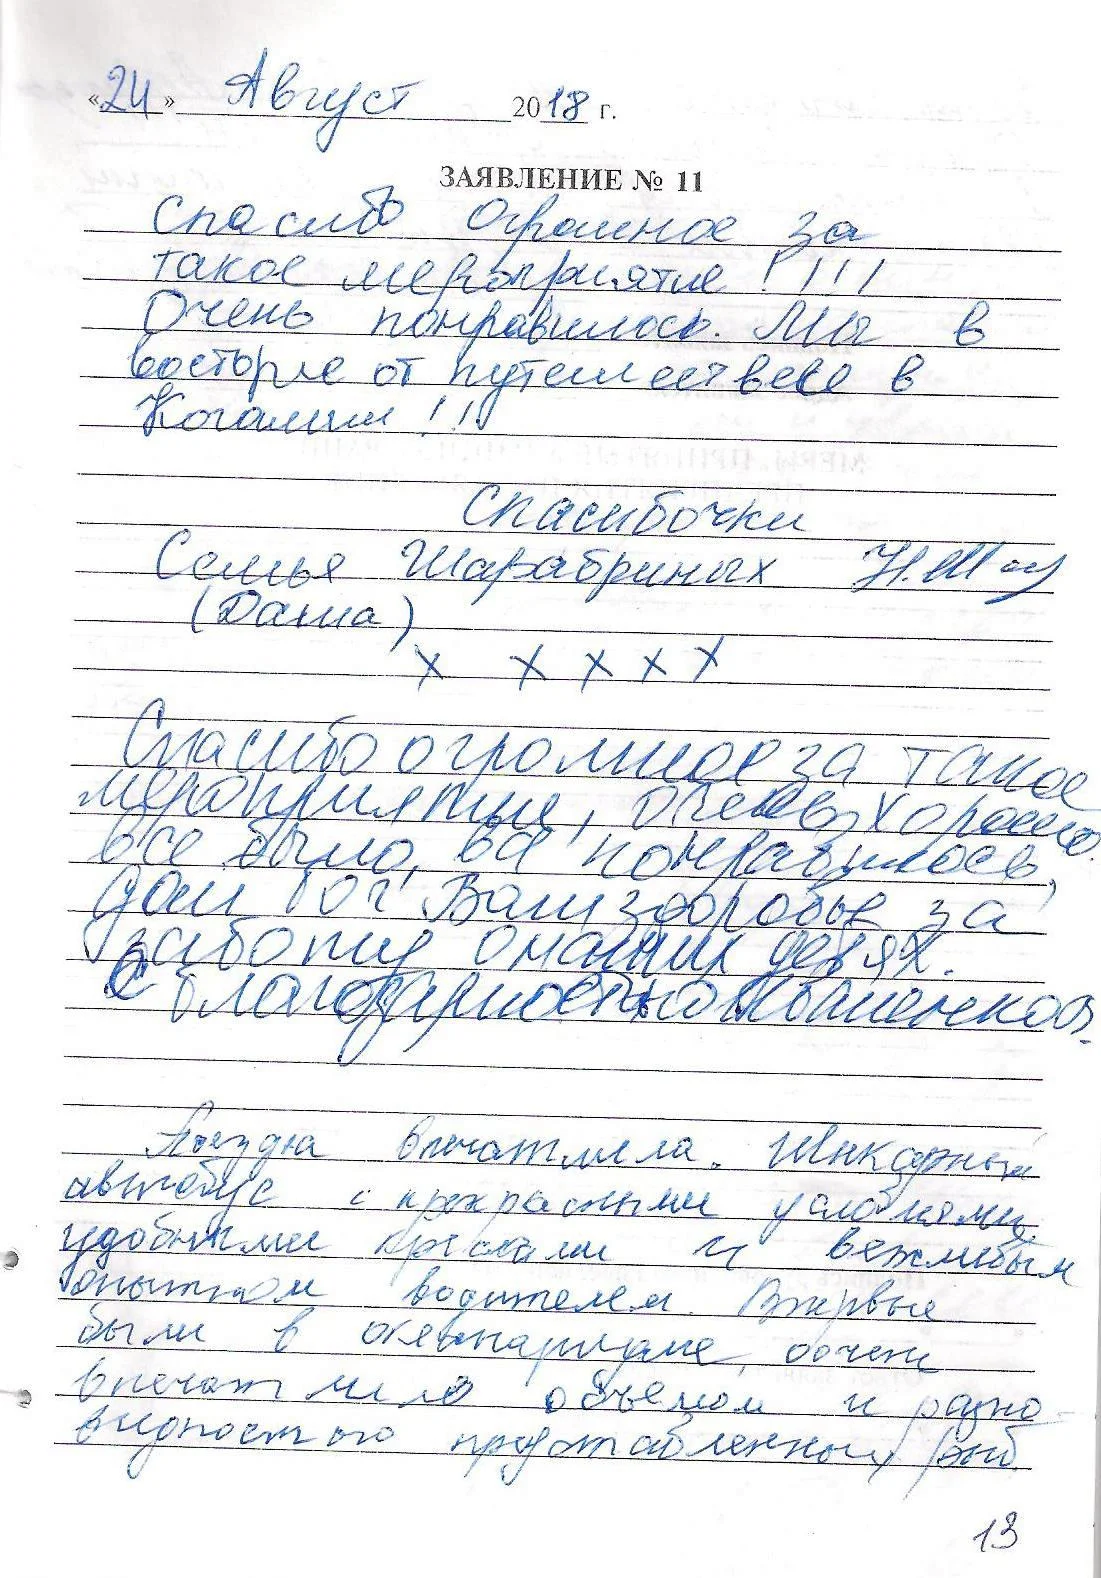 «24» Август 2018 г.
ЗАЯВЛЕНИЕ № 11
Спасибо огромное за
такое мероприятие !!!!
Очень понравилось. Мы в
восторге от путешествие в
Когалым !!!
Спасибочки
Семья Шарабриных
(Даша)
х х х х х
Спасибо огромное за такое
мероприятие, очень хорошо
все было, всё понравилось,
дай бог Вам здоровье за
заботу о наших детях.
С благодарностью
Поездка впечатлила. Шикарный
автобус с прекрасными условиями,
удобными креслами и вежливым
опытном водителем. Впервые
были в океанариуме, очень
впечатлило объемом и разно-
видностью представленных рыб.
13